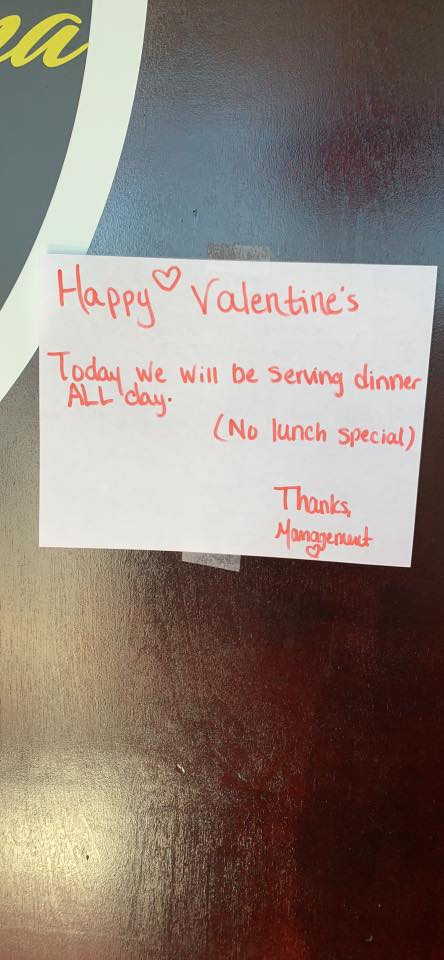 na
Happy ♡ Valentine's
Today we will be serving dinner
ALL day.
(No lunch special)
Thanks,
Management